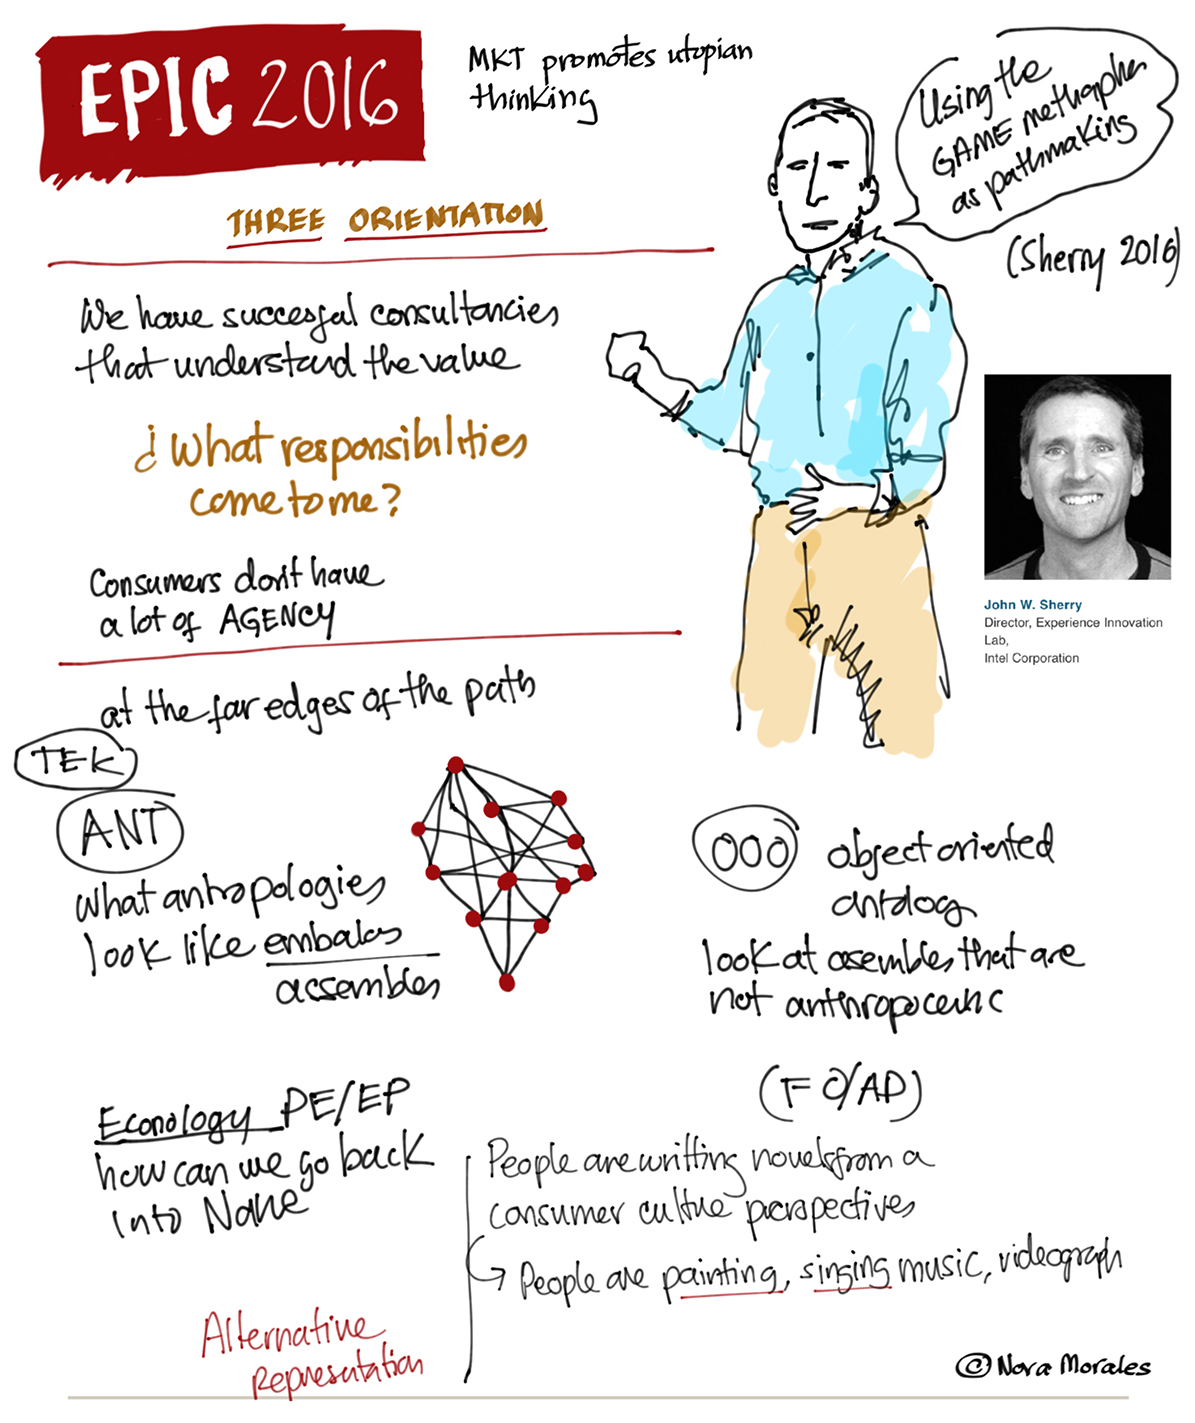 EPIC 2016
MKT promotes utopian
thinking
Using the
GAME methapher
as pathmaking
(Sherry 2016)
THREE ORIENTATION
We have succesful consultancies
that understand the value
¿What responsibilities
come to me?
Consumers don't have
a lot of AGENCY
John W. Sherry
Director, Experience Innovation
Lab,
Intel Corporation
at the far edges of the path
TEK
ANT
what antropologies
look like
assembles
OOO object oriented
look at asembles that are
not
Econology PE/EP
how can we go back
into
(F O/AD)
People are writting novels from a
consumer cultue perspectives
People are painting, singing music, videograph
Alternative
Representation
© Nora Morales